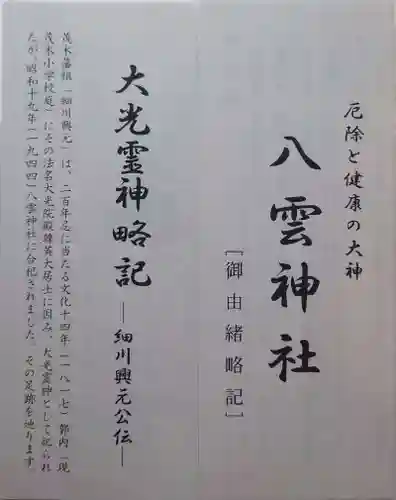 厄除と健康の大神
八雲神社
［御由緒略記］
大光霊神略記
―細川興元公伝―
茂木藩祖「細川興元」は、二百年忌に当たる文化十四年（一八一七）郭内（現
茂木小学校庭）にその法名大光院殿雄英大居士に因み、大光霊神として祀られ
たが、昭和十九年（一九四四）八雲神社に合祀されました。その足跡を辿ります。